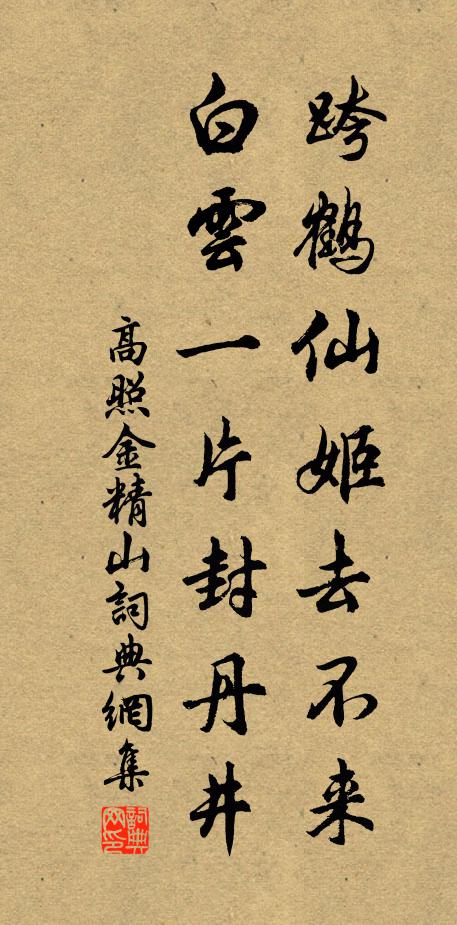 跨鹤仙姬去不来
白雲一片封丹井
高照金精山詞典網集
詞典网印